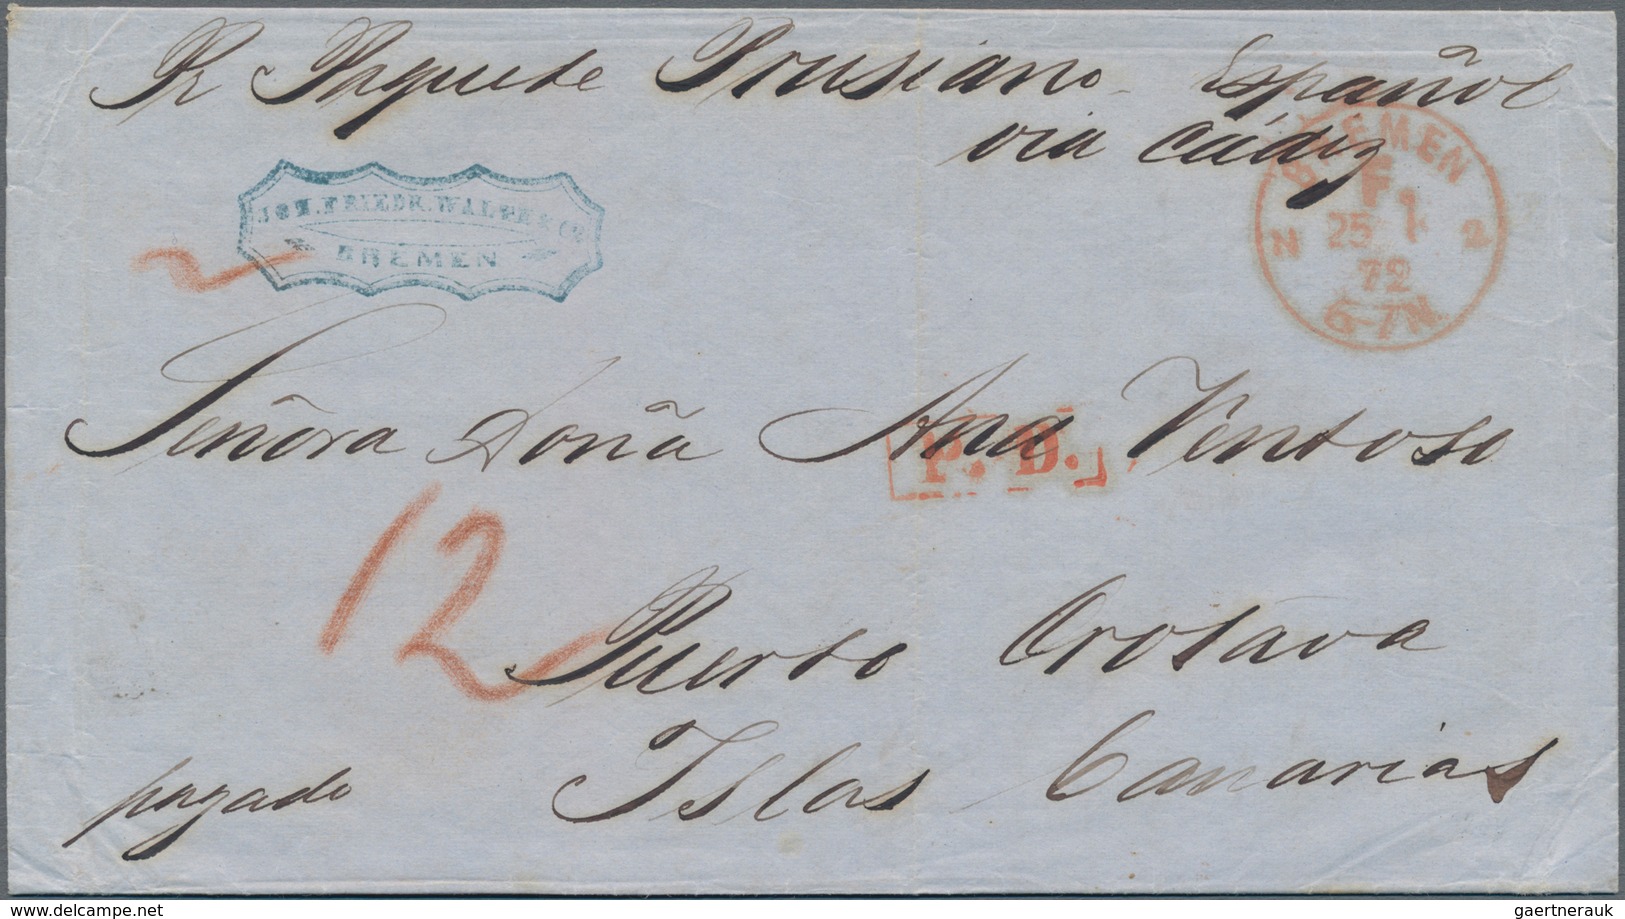 Pr Paquete Prusiano Español
via Cádiz
BREMEN
F. 1
25 1
N 2
72
6-7N.
JOH. FRIEDR. WALTE & Co
BREMEN
Señora Doña Ana Ventoso
P. D.
12
Puerto Orotava
Islas Canarias
pagado
www.delcampe.net
gaertnerauk